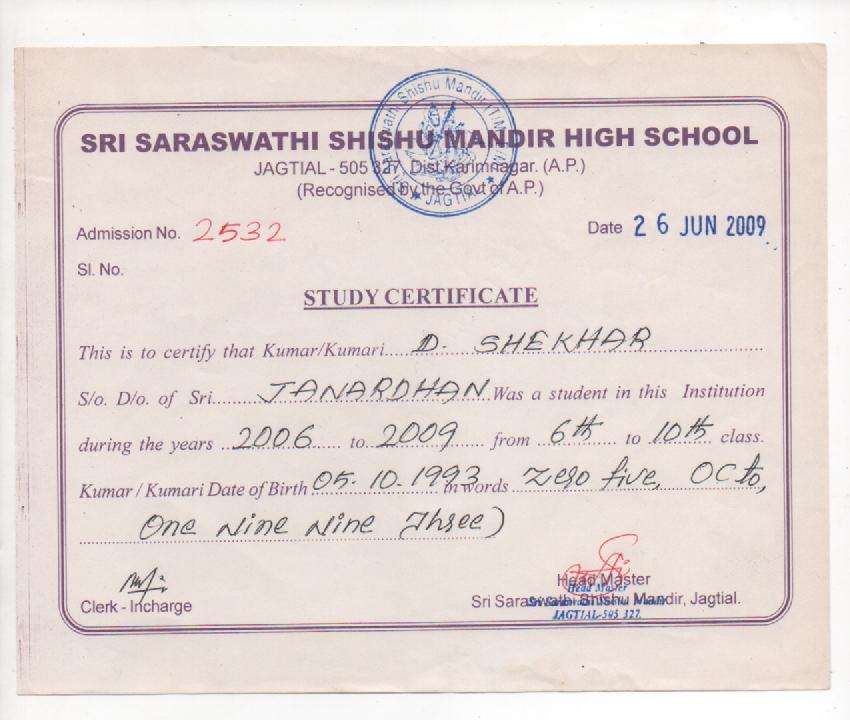 SRI SARASWATHI SHISHU MANDIR HIGH SCHOOL
JAGTIAL - 505 327, Dist. Karimnagar. (A.P.)
(Recognised by the Govt of A.P.)
Shishu Mandir
★ JAGTIAL ★
Admission No. 2532
Date 26 JUN 2009
Sl. No.
STUDY CERTIFICATE
This is to certify that Kumar/Kumari D. SHEKHAR
S/o. D/o. of Sri. JANARDHAN Was a student in this Institution
during the years 2006 to 2009 from 6th to 10th class.
Kumar / Kumari Date of Birth 05-10-1993 in words Zero five, Octo,
One Nine Nine Three)
Clerk - Incharge
Head Master
Sri Saraswathi Shishu Mandir, Jagtial.
Head Master
Sri Saraswathi Shishu Mandir
JAGTIAL-505 327.